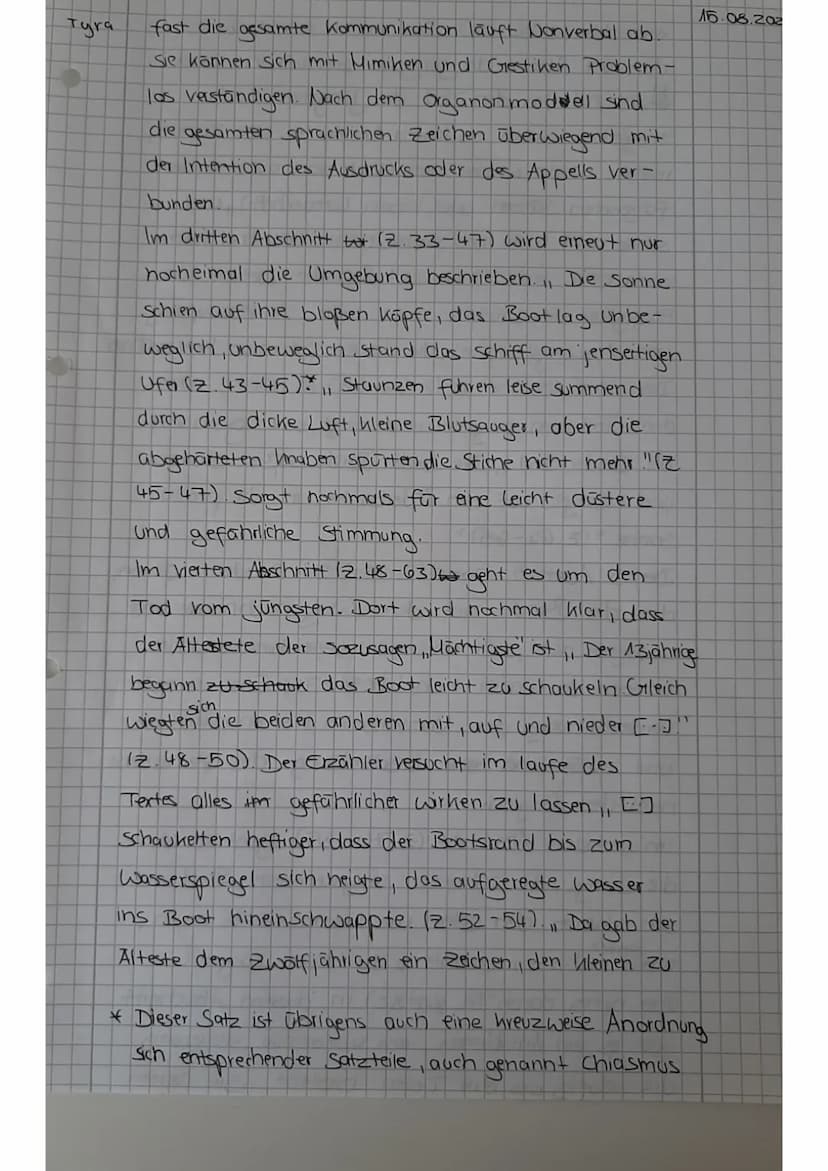 Tyra
15.08.202
fast die gesamte Kommunikation läuft Nonverbal ab.
Sie können sich mit Mimiken und Gestiken Problem-
los verständigen. Nach dem Organonmodell sind
die gesamten sprachlichen Zeichen überwiegend mit
der Intention des Ausdrucks oder des Appells ver-
bunden.
Im dritten Abschnitt (Z. 33-47) wird erneut nur
nocheimal die Umgebung beschrieben. „ Die Sonne
schien auf ihre bloßen Köpfe, das Boot lag unbe-
weglich, unbeweglich stand das Schiff am jensertigen
Ufer (Z. 43-45)"* „ Staunzen fuhren leise summend
durch die dicke Luft, kleine Blutsauger, aber die
abgehärteten Knaben spürten die Stiche nicht mehr "(Z
45-47). Sorgt nochmals für eine leicht düstere
und gefährliche Stimmung.
Im vierten Abschnitt (Z. 48-63) geht es um den
Tod vom jüngsten. Dort wird nochmal klar, dass
der Ältestete der sozusagen „Mächtigste" ist „ Der 13jährige
begann zu schauk das Boot leicht zu schaukeln Gleich
wiegten sich die beiden anderen mit, auf und nieder [..]"
(Z. 48-50). Der Erzähler versucht im laufe des
Textes alles im gefährlicher wirken zu lassen „ [..]
schaukelten heftiger, dass der Bootsrand bis zum
Wasserspiegel sich neigte, das aufgeregte Wasser
ins Boot hineinschwappte. (Z. 52-54). „ Da gab der
Älteste dem Zwölfjährigen ein Zeichen, den kleinen zu
* Dieser Satz ist übrigens auch eine kreuzweise Anordnung
sich entsprechender Satzteile, auch genannt Chiasmus